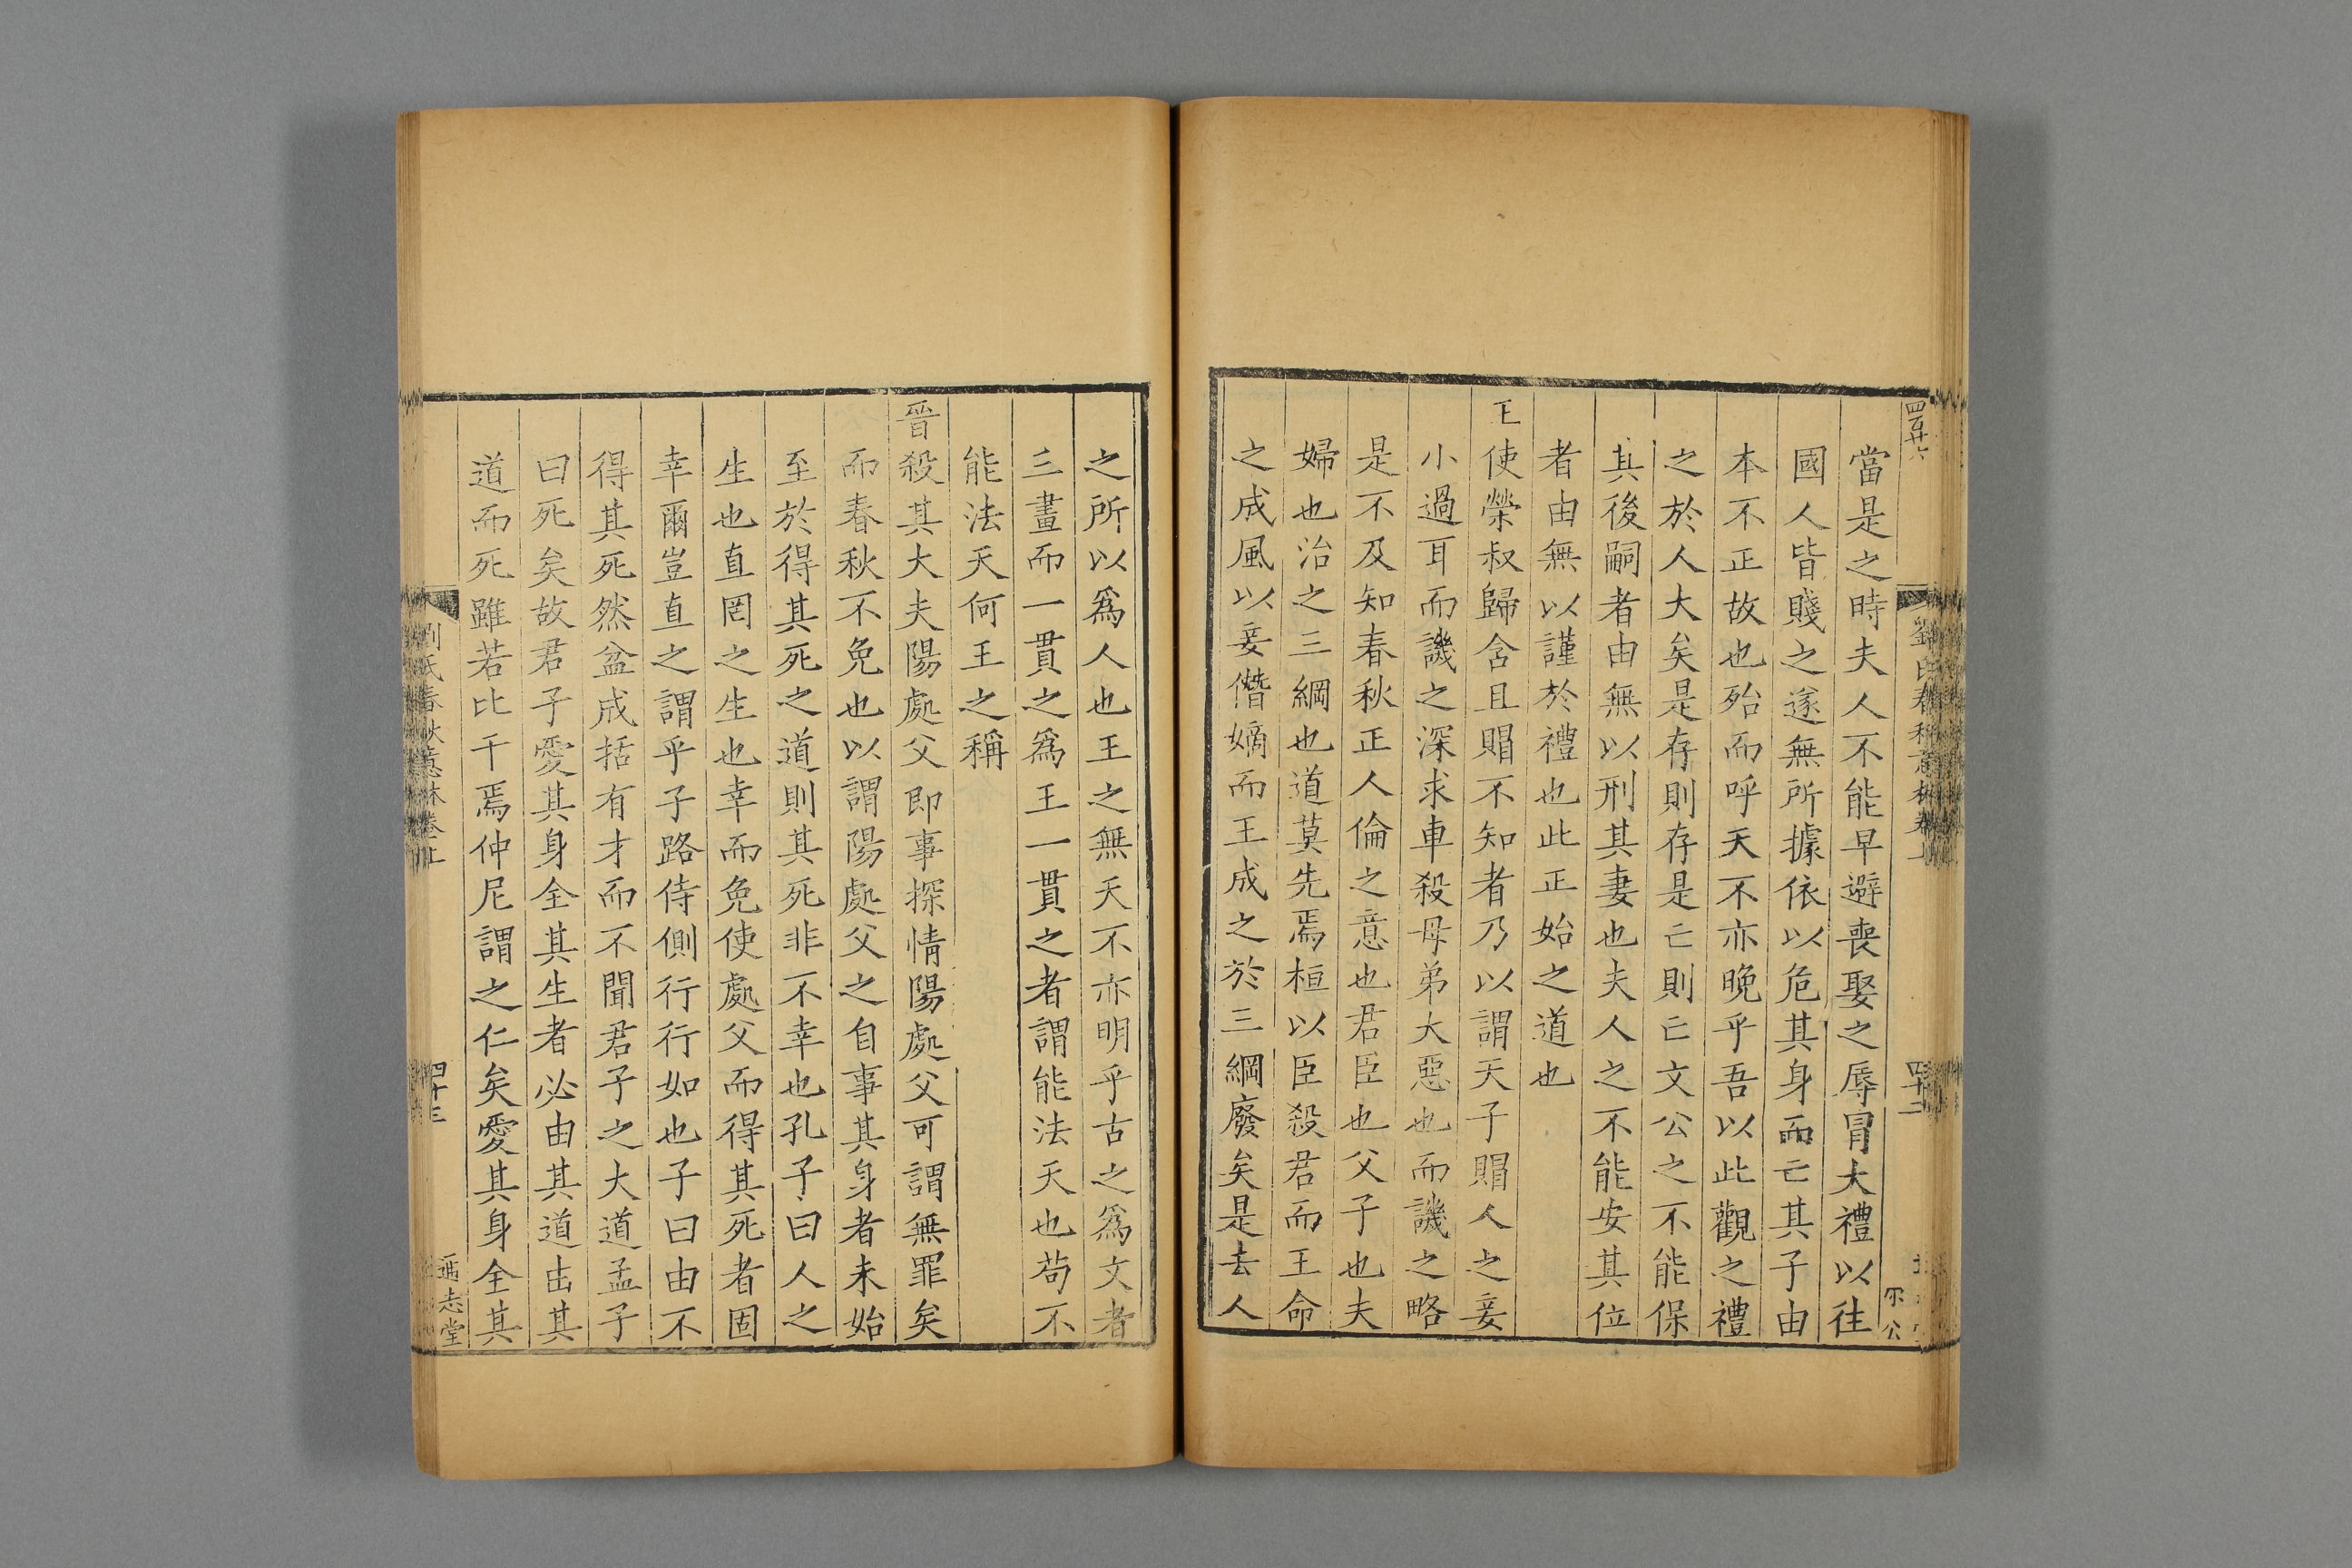 四百廿六
劉氏春秋意林卷上
四十二
當是之時夫人不能早避喪娶之辱冒大禮以往
國人皆賤之遂無所據依以危其身而亡其子由
本不正故也殆而呼天不亦晚乎吾以此觀之禮
之於人大矣是存則存是亡則亡文公之不能保
其後嗣者由無以刑其妻也夫人之不能安其位
者由無以謹於禮也此正始之道也
王使榮叔歸含且賵不知者乃以謂天子賵人之妾
小過耳而譏之深求車殺母弟大惡也而譏之略
是不及知春秋正人倫之意也君臣也父子也夫
婦也治之三綱也道莫先焉桓以臣殺君而王命
之成風以妾僭嫡而王成之於三綱廢矣是去人
之所以爲人也王之無天不亦明乎古之爲文者
三畫而一貫之爲王一貫之者謂能法天也苟不
能法天何王之稱
晉殺其大夫陽處父即事探情陽處父可謂無罪矣
而春秋不免也以謂陽處父之自事其身者未始
至於得其死之道則其死非不幸也孔子曰人之
生也直罔之生也幸而免使處父而得其死者固
幸爾豈直之謂乎子路侍側行行如也子曰由不
得其死然盆成括有才而不聞君子之大道孟子
曰死矣故君子愛其身全其生者必由其道出其
道而死雖若比干焉仲尼謂之仁矣愛其身全其
劉氏春秋意林卷上
四十三
通志堂